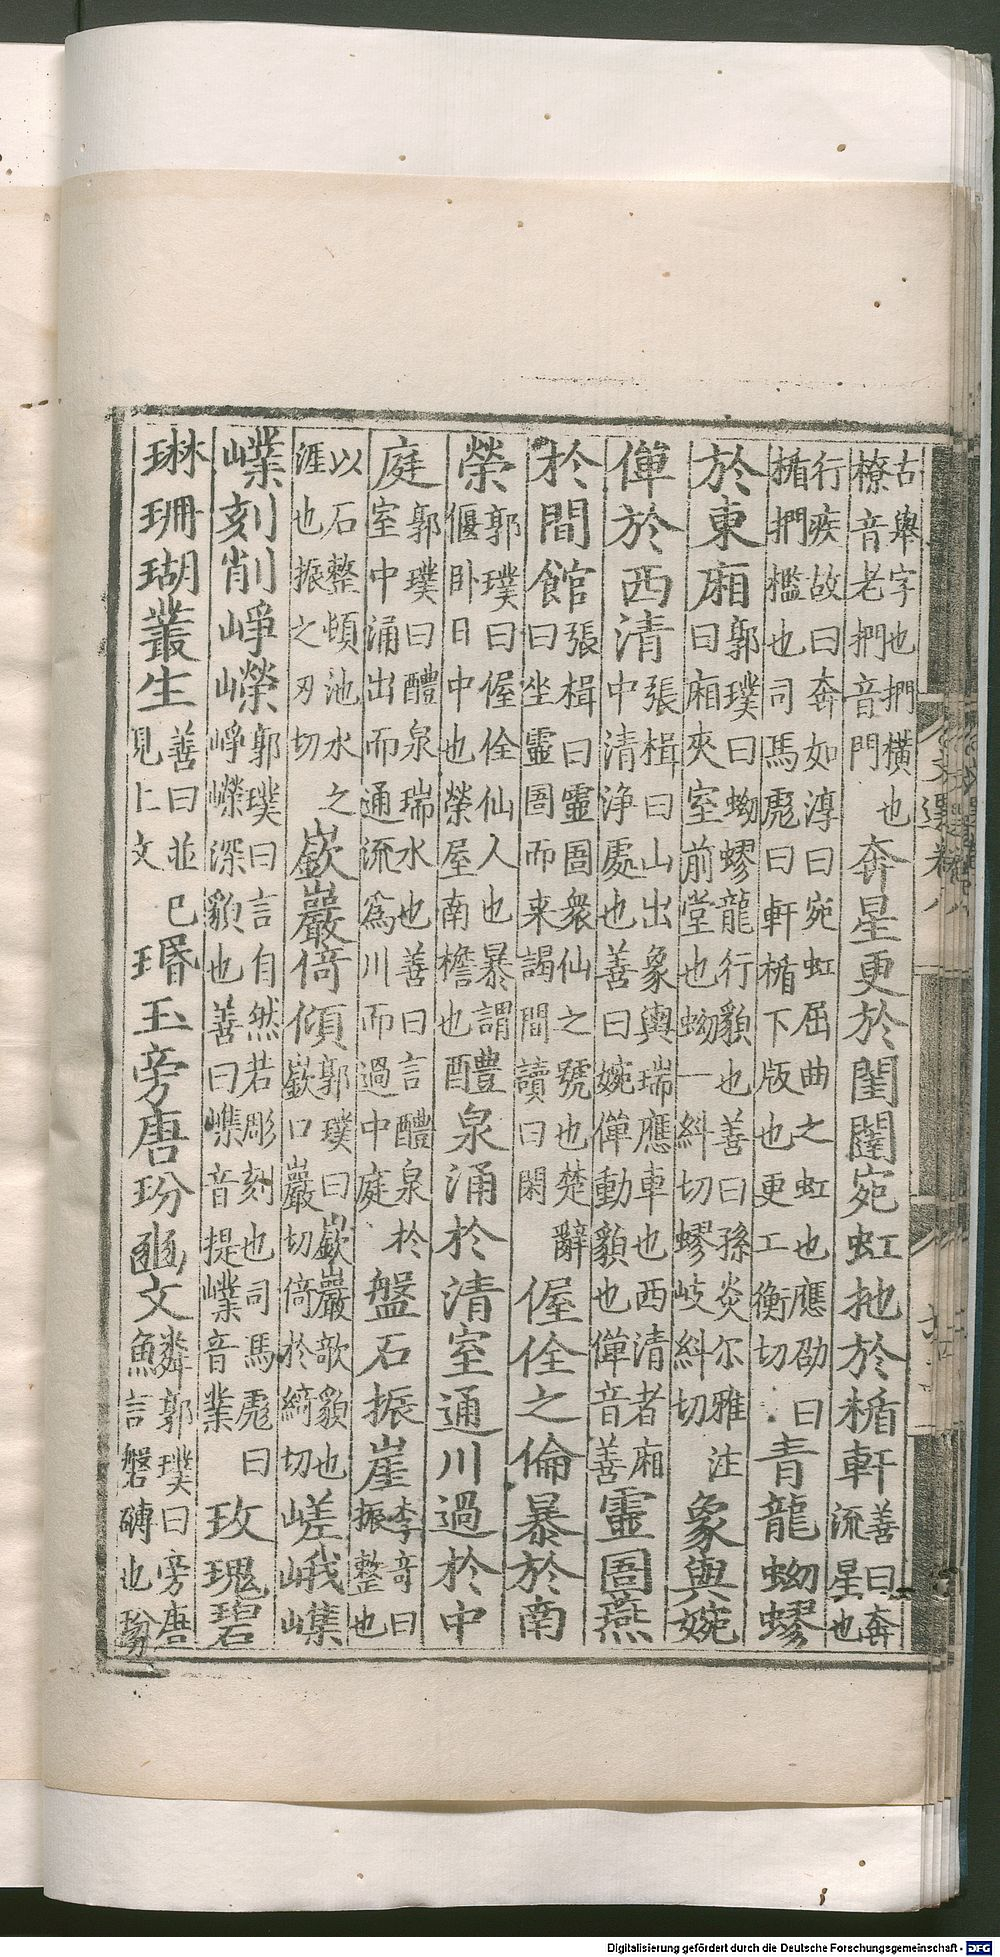 古舉字也捫橫也
橑音老捫音門
奔星更於閨闥宛虹拖於楯軒
善曰奔
流星也
行疾故曰奔如淳曰宛虹屈曲之虹也應劭曰
楯捫檻也司馬彪曰軒楯下版也更工衡切
青龍蚴蟉
於東廂
郭璞曰蚴蟉龍行貌也善曰孫炎尔雅注
曰廂夾室前堂也蚴一糾切蟉岐糾切
象輿婉
僤於西清
張楫曰山出象輿瑞應車也西清者廂
中清浄處也善曰婉僤動貌也僤音善
靈圄燕
於閒館
張楫曰靈圄衆仙之號也楚辭
曰坐靈圄而来謁閒讀曰閑
偓佺之倫暴於南
榮
郭璞曰偓佺仙人也暴謂
偃卧日中也榮屋南檐也
醴泉涌於清室通川過於中
庭
郭璞曰醴泉瑞水也善曰言醴泉於
室中涌出而通流爲川而過中庭
盤石振崖
李奇曰
振整也
以石整頓池水之
涯也振之刃切
嶔巖倚傾
郭璞曰嶔巖欹貌也
嶔口巖切倚於綺切
嵯峨㠎
嶫刻削崢嶸
郭璞曰言自然若彫刻也司馬彪曰
崢嶸深貌也善曰㠎音提嶫音業
玫瑰碧
琳珊瑚叢生
善曰並已
見上文
瑉玉旁唐玢豳文鱗
郭璞曰旁唐
言磐礴也玢
文選卷八
Digitalisierung gefördert durch die Deutsche Forschungsgemeinschaft - DFG